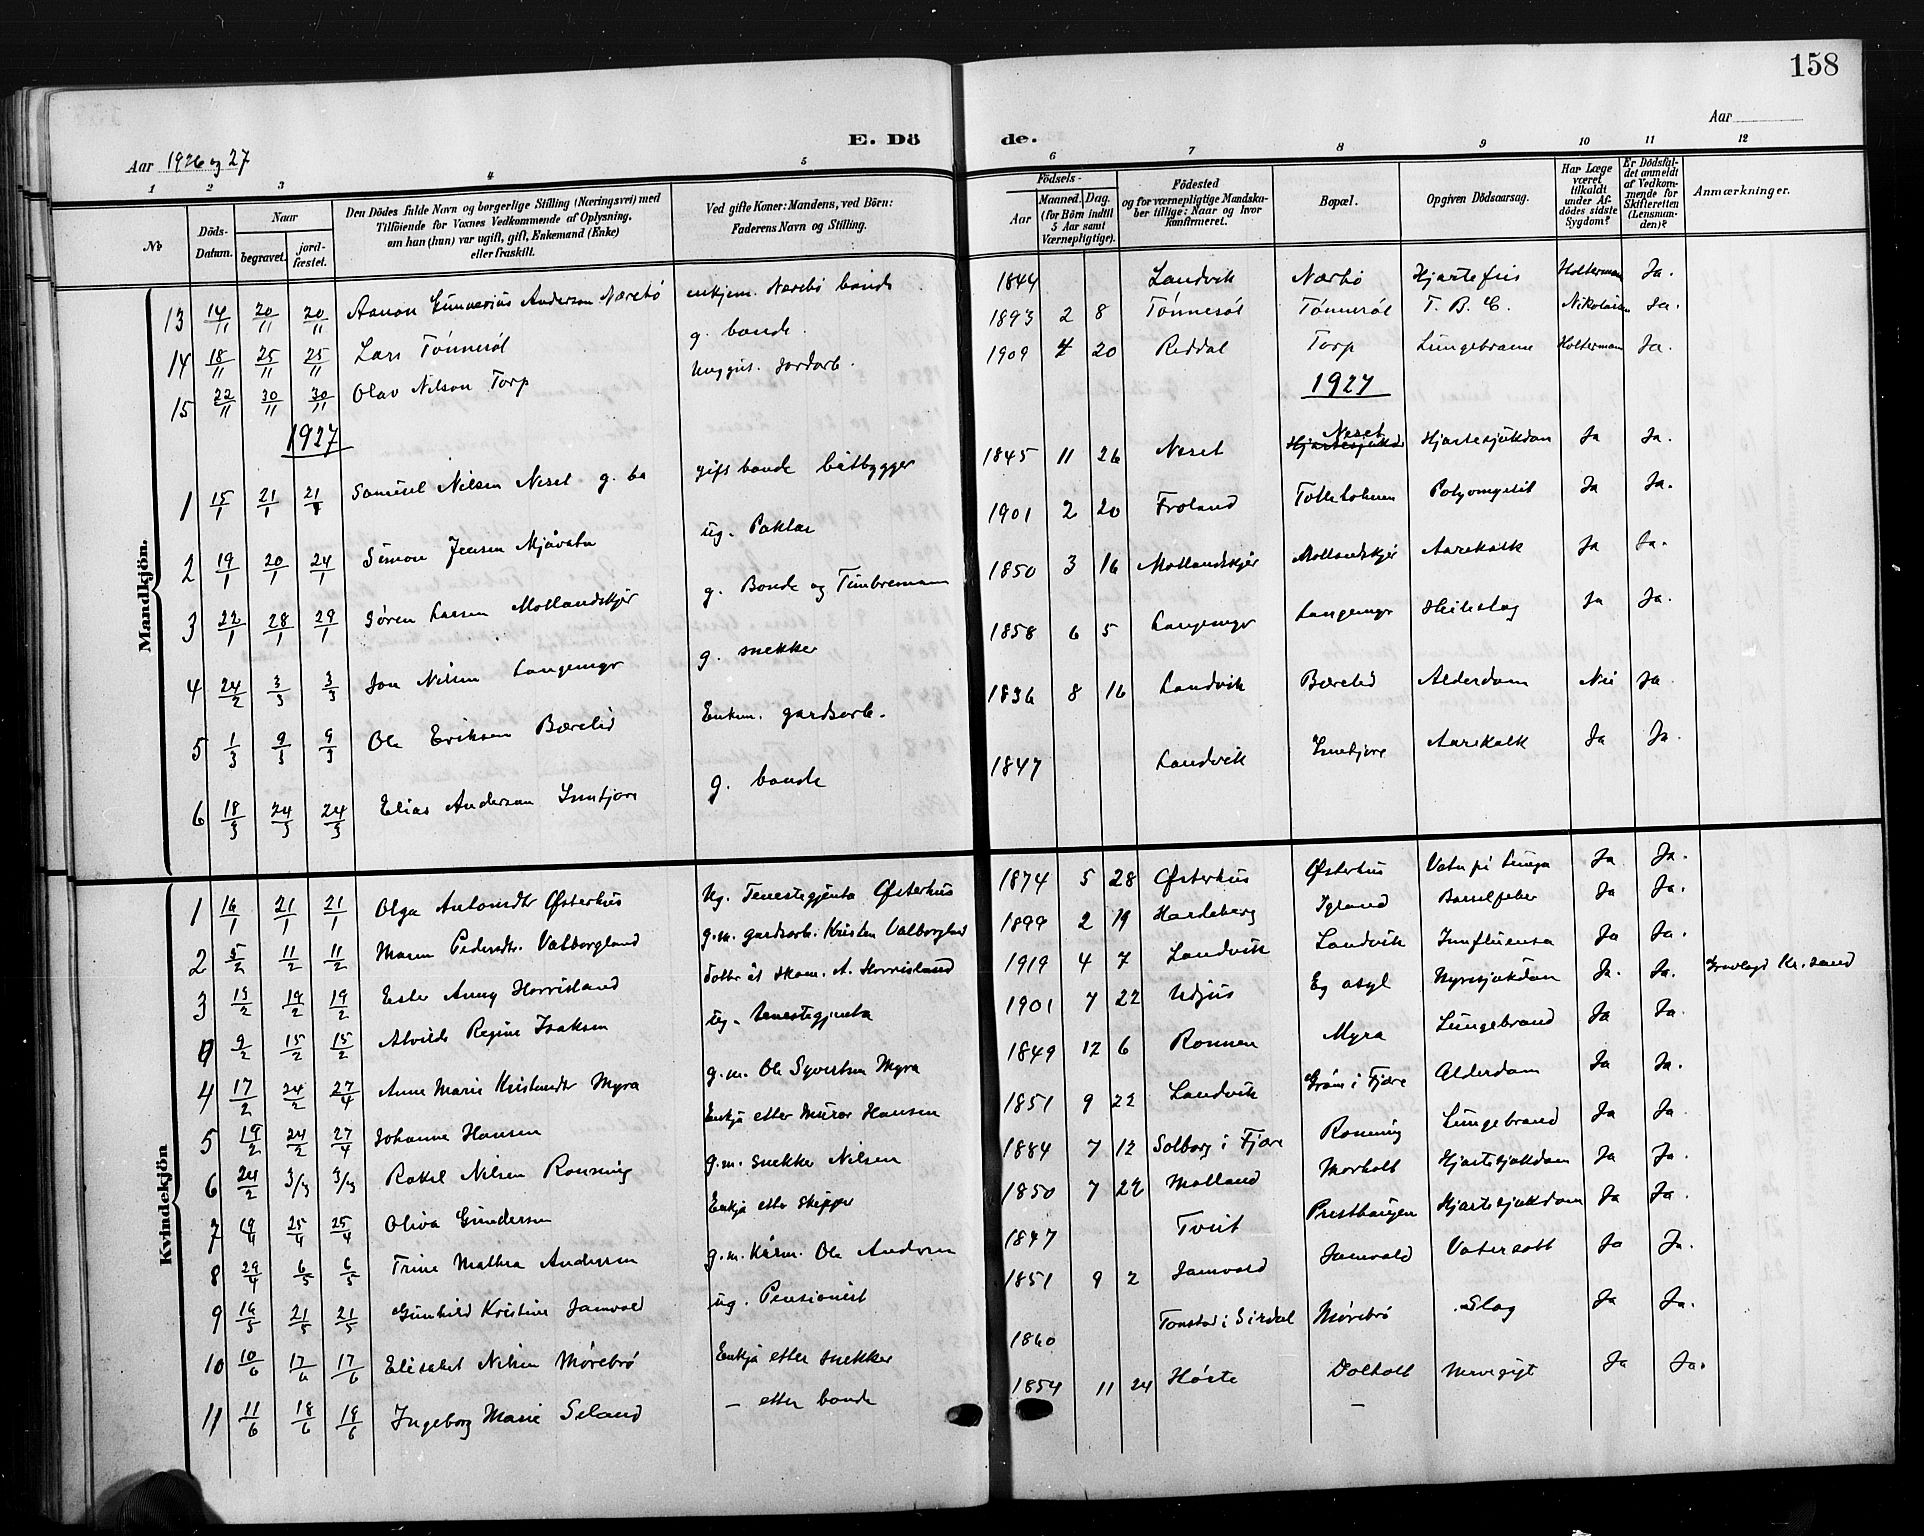 158
E. Døde.
Aar 1926 og 27
Aar
1 2 3 4 5 6 7 8 9 10 11 12
No
Döds-Datum.
Naar
begravet.
jord-fæstet.
Den Dödes fulde Navn og borgerlige Stilling (Næringsvei) med
Tilföiende for Voxnes Vedkommende af Oplysning,
om han (hun) var ugift, gift, Enkemand (Enke)
eller fraskilt.
Ved gifte Koner: Mandens, ved Börn:
Faderens Navn og Stilling.
Födsels-
Aar
Maaned. Dag.
(for Börn indtil
5 Aar samt
Værnepligtige).
Födested
og for værnepligtige Mandska-
ber tillige: Naar og hvor
konfirmeret.
Bopæl.
Opgiven Dödsaarsag.
Har Læge
været
tilkaldt
under Af-
dödes sidste
Sygdom?
Er Dödsfal-
det anmeldt
af Vedkom-
mende for
Skifteretten
(Lensman-
den)?
Anmærkninger.
Mandkjön.
13 14/11 20/11 20/11 Aanon Gunnerius Anderson Nærebø enkjem. Nærebø bonde 1844 Landvik Nærbø Hjartefeil Holterman Ja.
14 18/11 25/11 25/11 Lars Tönnesöl g. bonde. 1893 2 8 Tönnesöl Tönnesöl T. B. C. Nikolaisen Ja.
15 22/11 30/11 30/11 Olav Nilson Torp Unggut. Jordarb. 1909 4 20 Reddal Torp Lungebrann Holterman Ja.
1927 1927
1 15/1 21/1 21/1 Samuel Nilsen Neset g. ba gift bonde båtbygger 1845 11 26 Neset Hjartesjukd Neset Hjartesjukdom Ja Ja.
2 19/1 20/1 24/1 Simon Jensen Mjåvatn ug. Paklar 1901 2 20 Froland Tolleholmen Ja Ja.
3 22/1 28/1 29/1 Søren Larsen Mollandskjer g. Bonde og Timbremann 1850 3 16 Mollandskjer Mollandskjer Aarekalk Ja Ja.
4 24/2 3/3 3/3 Jon Nilsen Langemyr g. snekker 1858 6 5 Langemyr Langemyr Ja Ja.
5 1/3 9/3 9/3 Ole Eriksen Bærelid Enkm. gardsarb. 1836 8 16 Landvik Bærelid Alderdom Nei Ja.
6 18/3 24/3 24/3 Elias Anderson g. bonde 1847 Landvik Aarekalk Ja Ja.
Kvindekjön
1 16/1 21/1 21/1 Olga Antonsdtr Østerhus Ug. Tenestegjenta Østerhus 1874 5 28 Østerhus Østerhus Vatn på Lunga Ja Ja.
2 5/2 11/2 11/2 Maren Pedersdtr. Valborgland g.m. gardsarb. Kristen Valborgland 1899 2 19 Hardeberg Igland Barselfeber Ja Ja.
3 13/2 19/2 19/2 Ester Anny Horrisland Dottr åt skom. A. Horrisland 1919 4 7 Landvik Landvik Innfluensa Ja Ja.
9/2 15/2 15/2 Alvilde Regine Isaksen ug. tenestegjenta 1901 7 22 Udjus Eg asyl Nyresjukdom Ja. Ja. Gravlagd Kr. sand
4 17/2 24/2 27/4 Anne Marie Kristensdtr Myra g.m. Ole Syvertsen Myra 1849 12 6 Ronnen Myra Lungebrand Ja Ja.
5 19/2 24/2 27/4 Johanne Hansen Enkja etter Murar Hansen 1851 9 22 Landvik Grøm i Fjære Alderdom Ja Ja.
6 24/2 3/3 3/3 Rakel Nilsen Ronning g.m. snekker Nilsen 1884 7 12 Solborg i Fjære Ronning Lungebrand Ja Ja.
7 19/4 25/4 25/4 Oliva Gundersen Enkja etter skipper 1850 7 22 Molland Morholt Hjartesjukdom Ja Ja.
8 29/4 6/5 6/5 Trine Mathea Andersen g.m. Kårm. Ole Andersen 1847 Tveit Presthaugen Hjartesjukdom Ja Ja.
9 16/5 21/5 21/5 Gunhild Kristine Jamvold ug. Pensionist 1851 9 2 Jamvold Jamvold Vatersott Ja Ja.
10 10/6 17/6 17/6 Elisabet Nilsen Mørebrø Enkja etter snekker 1860 Tonstad i Sirdal Mørebrø Slag Ja Ja.
11 11/6 18/6 18/6 Ingeborg Marie Seland — etter bonde 1854 11 24 Høste Dolholt Nervegigt Ja Ja.
—